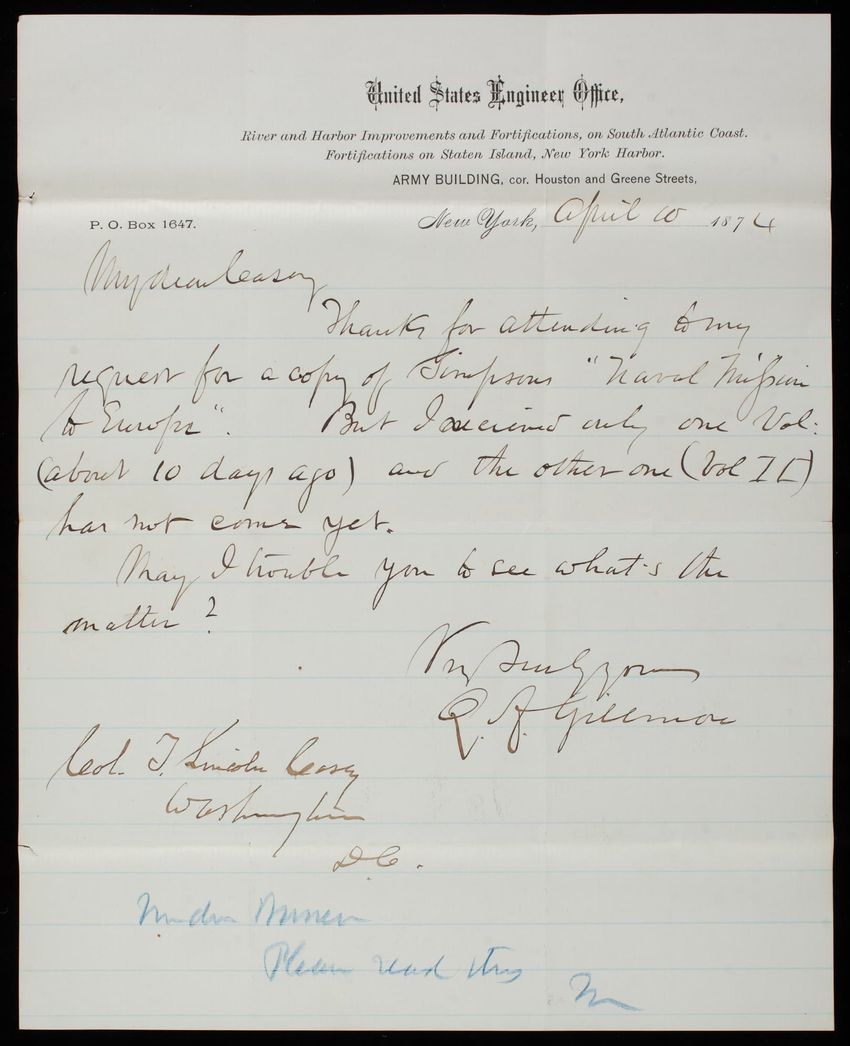 United States Engineer Office,
River and Harbor Improvements and Fortifications, on South Atlantic Coast.
Fortifications on Staten Island, New York Harbor.
ARMY BUILDING, cor. Houston and Greene Streets,
P. O. Box 1647.
New York, April 10 1874
My dear Casey
Thanks for attending to my
request for a copy of Simpsons "Naval Mission
to Europe". But I received only one Vol:
(about 10 days ago) and the other one (Vol II)
has not come yet.
May I trouble you to see what's the
matter?
Very truly yours
Q. A. Gillmore
Col. T. Lincoln Casey
Washington
D.C.
Please read this